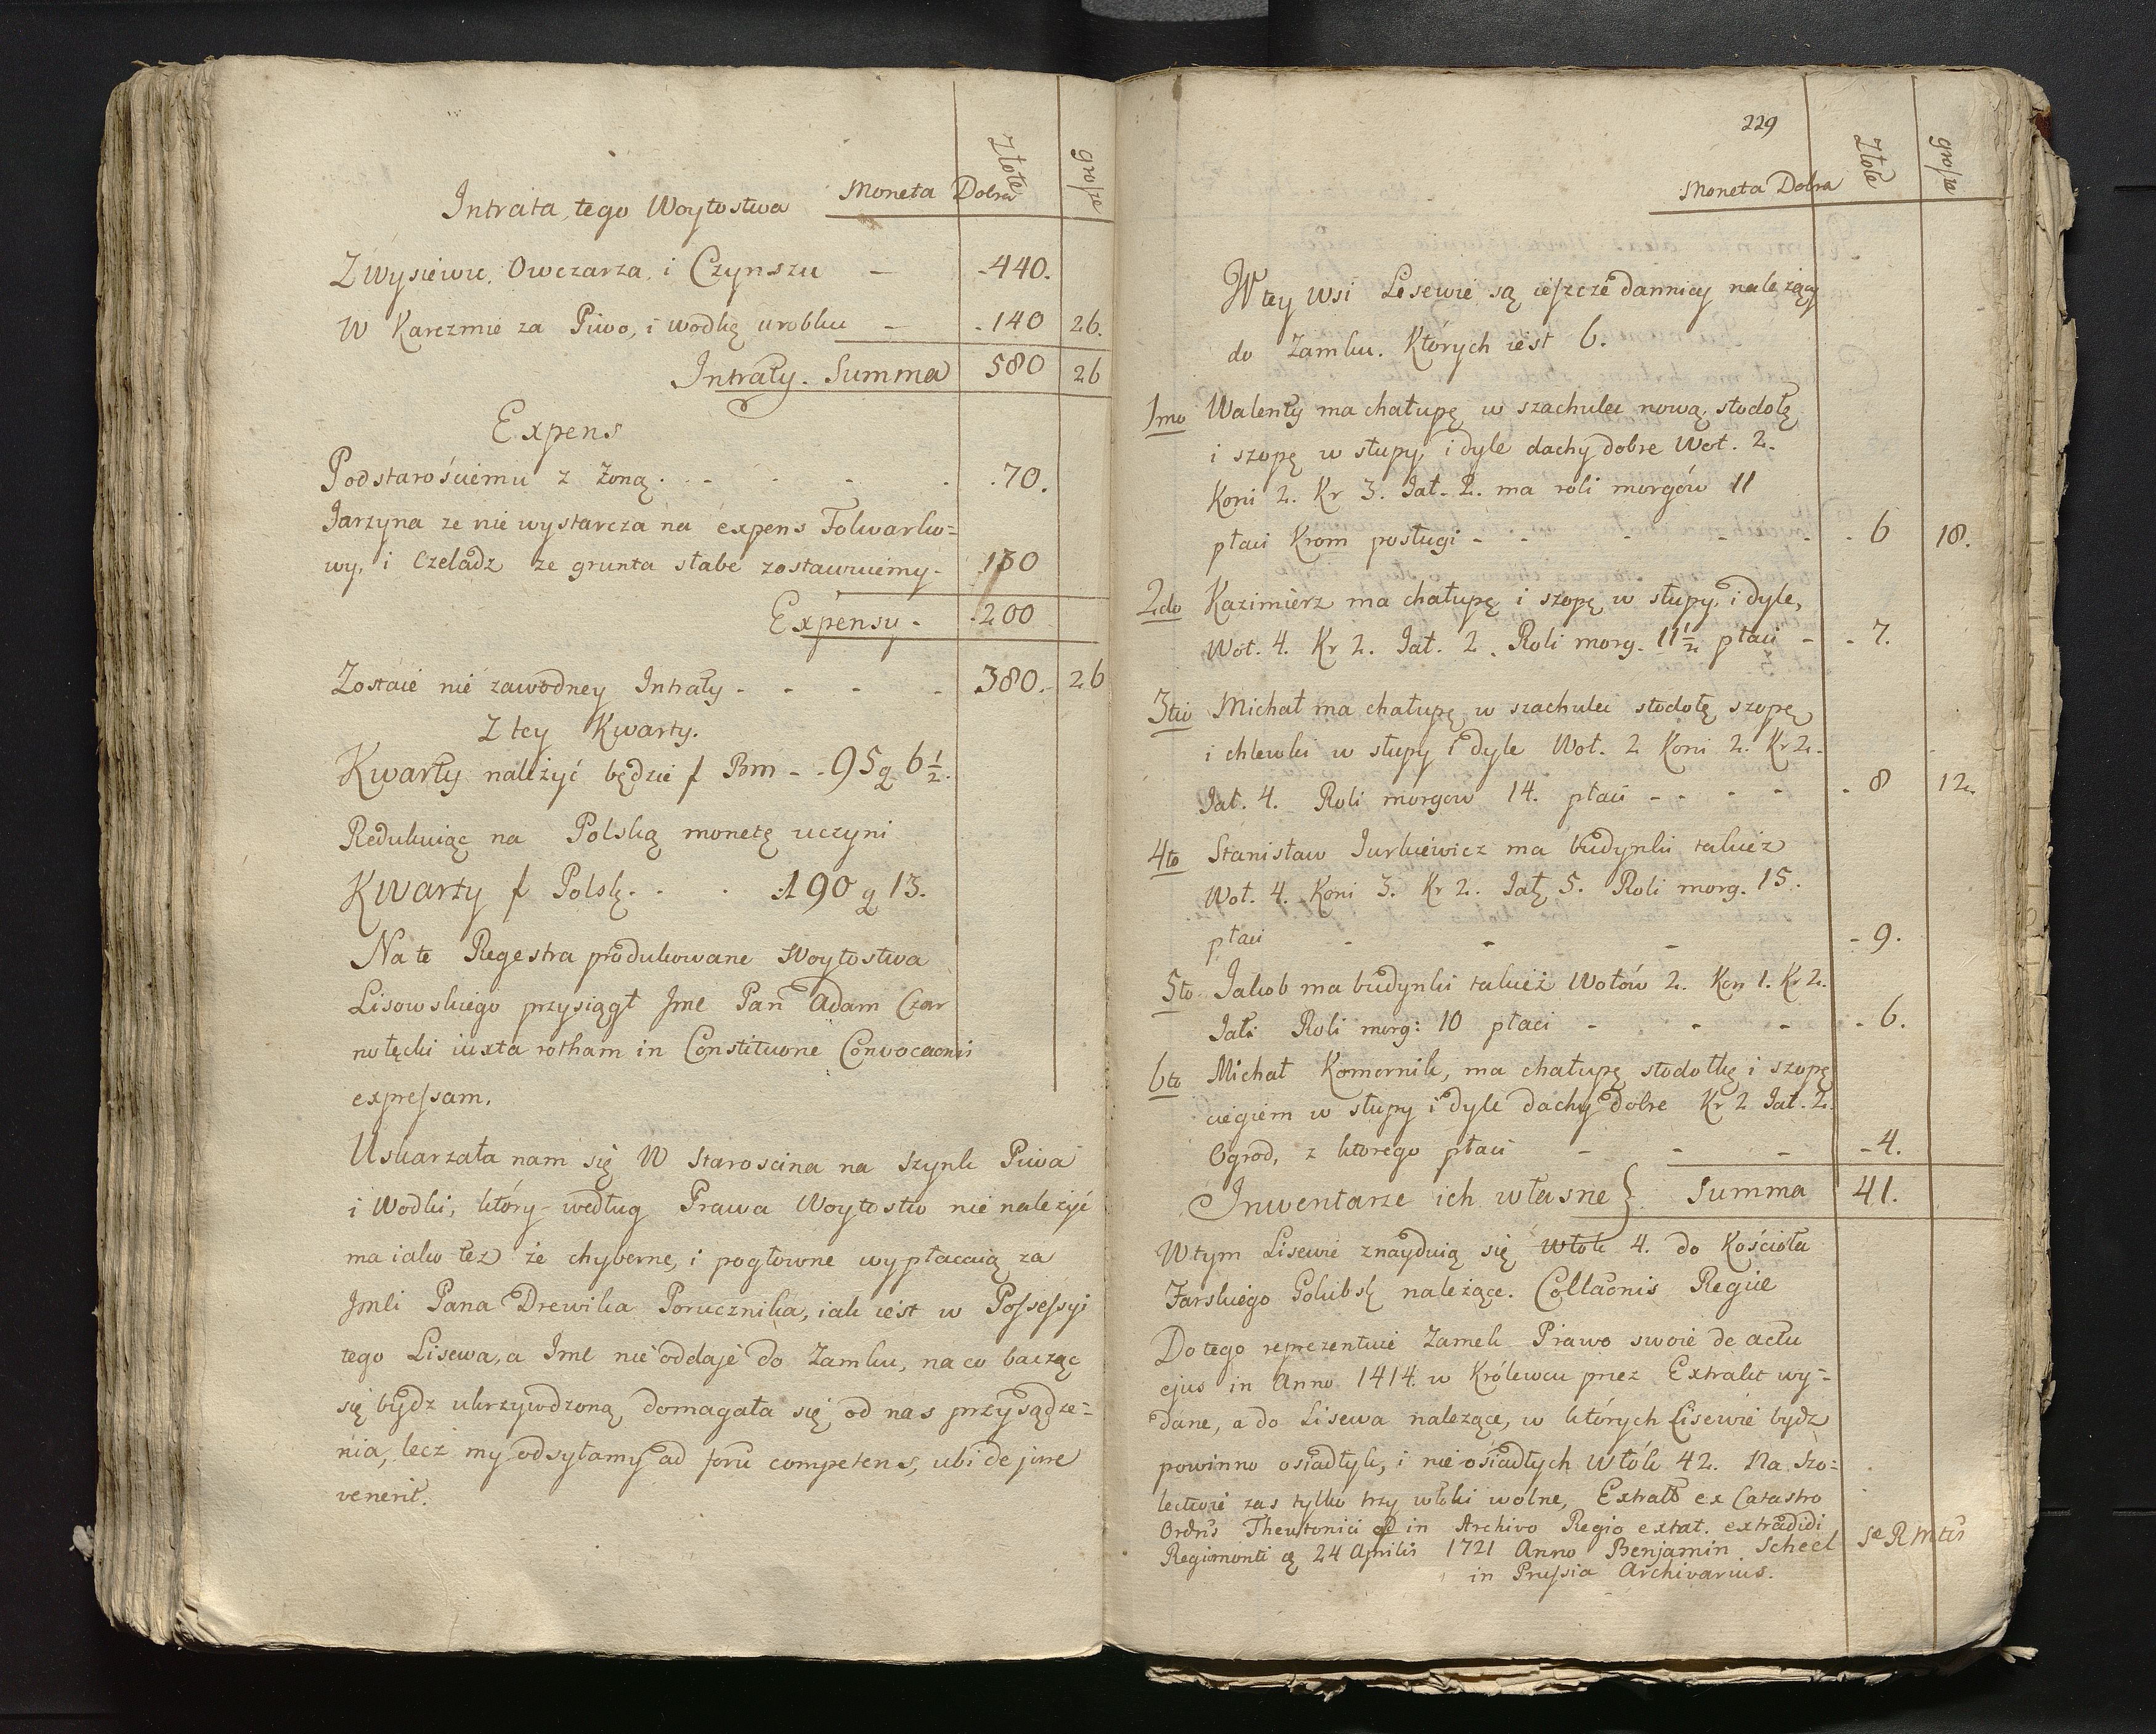 Intrata tego Woytostwa Moneta Dobra Złote grosze
Z Wysiewu, Owczarza, i Czynszu – -440.
W Karczmie za Piwo, i wodkę urobku – -140 26.
Intraty. Summa 580 26
Expens
Podstarościemu z Zoną . - - - . .70.
Jarzyna ze nie wystarcza na expens Folwarko=
wy, i Czeladz ze grunta słabe zostawuiemy - 130
Expensy - .200
Zostaie nie zawodney Intraty - - - - .380.- 26
Z tey Kwarty.
Kwarty należyć będzie f Bm - -95 g 6½.
Redukuiąc na Polską monetę uczyni
Kwarty f Polsk. . . .190 g 13.
Na te Regestra produkowane Woytostwa
Lisowskiego przysiągł Jmć Pan Adam Czar
notęcki iuxta rotham in Constituone Convocaonis
expressam.
Uskarzała nam się W Staroscina na Szynk Piwa
i Wodki, który według Prawa Woytostw nie należyć
ma iako też że chyberne, i pogłowne wypłacaią za
Jmći Pana Drewika Porucznika, iak iest w Possessyi
tego Lisewa, a Jmć nie oddaje do Zamku, na co bacząc
się bydz ukrzywdzoną domagała się od nas przysądze=
nia, lecz my odsyłamy ad forũ competens, ubi de jure
venerit.
229
Moneta Dobra Złote grosze
W tey Wsi Lesewie są ieszcze dannicy należący
do Zamku. Których iest 6.
1mo Walenty ma chałupę w szachulec nową, stodołę
i szopę w słupy i dyle dachy dobre Woł. 2.
Koni 2. Kr 3. Jał. 2. ma roli morgów 11
płaci Krom posługi - - - - - - 6 18.
2do Kazimierz ma chałupę i szopę w słupy i dyle,
Woł. 4. Kr 2. Jał. 2. Roli morg. 11½ płaci - - 7.
3tio Michał ma chałupę w szachulec stodołę szopę
i chlewki w słupy i dyle Woł. 2 Koni 2. Kr 2.
Jał. 4. Roli morgow 14. płaci - - - - - 8 12.
4to Stanisław Jurkiewicz ma budynki takież
Woł. 4. Koni 3. Kr 2. Jał. 5. Roli morg. 15.
płaci - - - - 9.
5to Jakob ma budynki takież Wołów 2. Kon 1. Kr 2.
Jał: Roli morg: 10 płaci - - - - 6.
6to Michał Komornik, ma chałupę stodołkę i szopę
ciegiem w słupy i dyle dachy dobre Kr 2 Jał. 2.
Ogrod, z ktorego płaci - - - -4.
Inwentarze ich własne } Summa 41.
W tym Lisewie znayduią się Włok 4. do Kościoła
Farskiego Golubsk należące. Collaonis Regiæ
Do tego reprezentuie Zamek Prawo swoie de actu
ejus in Anno 1414. w Królewcu przez Extrakt wy=
dane, a do Lisewa nalezące, w których Lisewie bydz
powinno osiadłyk, i nie osiadłych Włók 42. Na Szo=
lectwie zas tylko trzy włoki wolne, Extrakt ex Catastro
Ordñis Theutonici in Archivo Regio extat. extradidi
Regiomonti 24 Aprilis 1721 Anno Benjamin Scheel SæRMtis
in Prussia Archivarius.